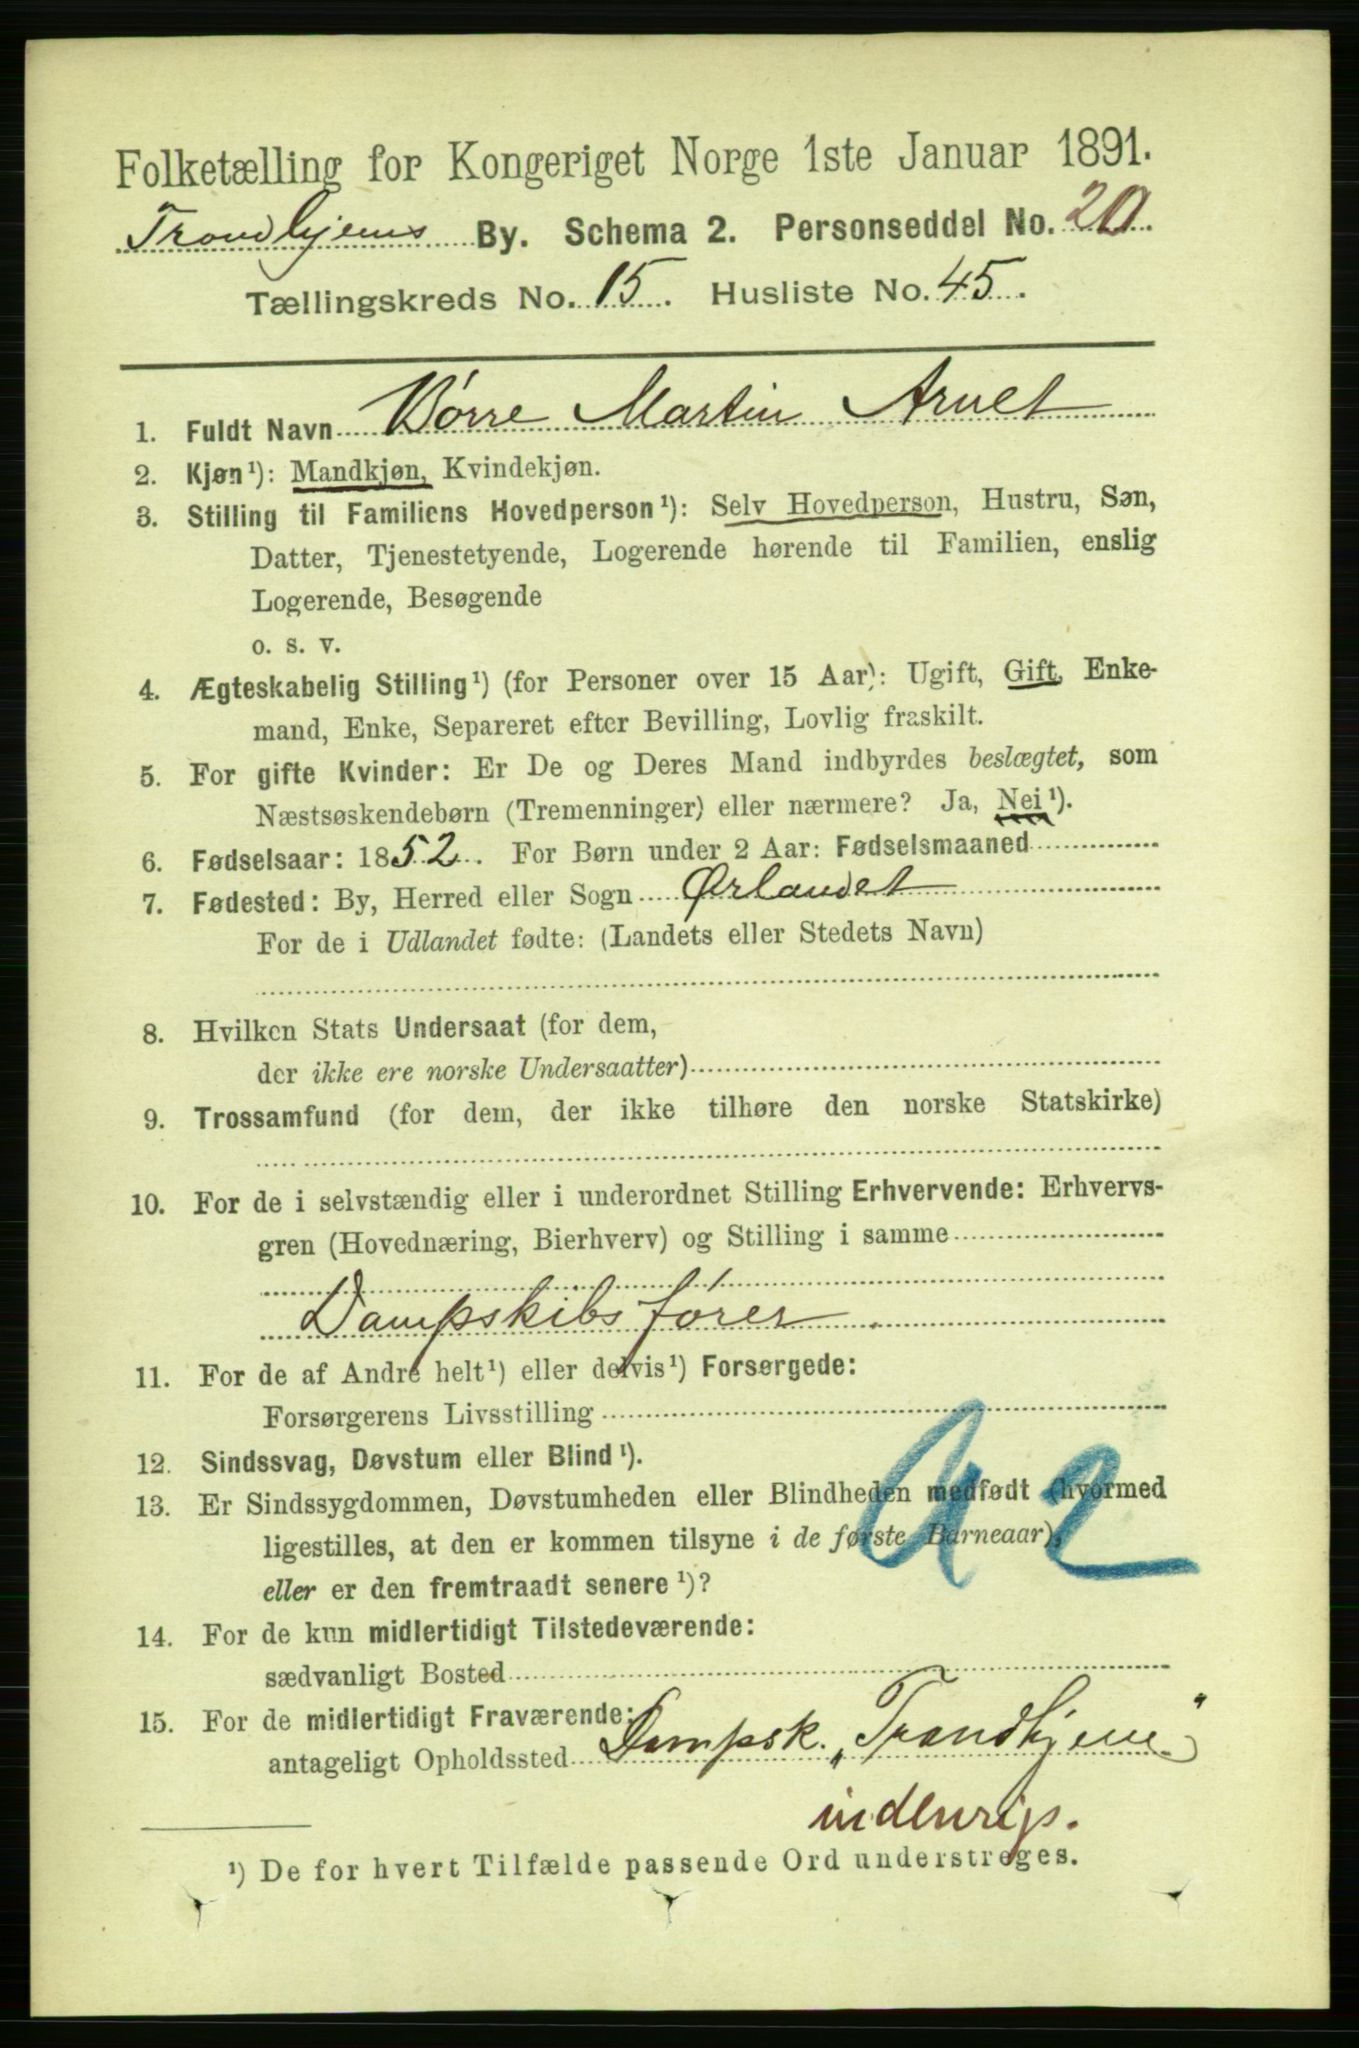 Folketælling for Kongeriget Norge 1ste Januar 1891.
Trondhjems By. Schema 2. Personseddel No. 20.
Tællingskreds No. 15. Husliste No. 45.
1. Fuldt Navn Børre Martin Arnet
2. Kjøn¹): Mandkjøn, Kvindekjøn.
3. Stilling til Familiens Hovedperson¹): Selv Hovedperson, Hustru, Søn,
Datter, Tjenestetyende, Logerende hørende til Familien, enslig
Logerende, Besøgende
o. s. v.
4. Ægteskabelig Stilling¹) (for Personer over 15 Aar): Ugift, Gift, Enke-
mand, Enke, Separeret efter Bevilling, Lovlig fraskilt.
5. For gifte Kvinder: Er De og Deres Mand indbyrdes beslægtet, som
Næstsøskendebørn (Tremenninger) eller nærmere? Ja, Nei¹).
6. Fødselsaar: 1852. For Børn under 2 Aar: Fødselsmaaned
7. Fødested: By, Herred eller Sogn Ørlandet
For de i Udlandet fødte: (Landets eller Stedets Navn)
8. Hvilken Stats Undersaat (for dem,
der ikke ere norske Undersaatter)
9. Trossamfund (for dem, der ikke tilhøre den norske Statskirke)
10. For de i selvstændig eller i underordnet Stilling Erhvervende: Erhvervs-
gren (Hovednæring, Bierhverv) og Stilling i samme
Dampskibsfører.
11. For de af Andre helt¹) eller delvis¹) Forsørgede:
Forsørgerens Livsstilling
12. Sindssvag, Døvstum eller Blind¹).
13. Er Sindssygdommen, Døvstumheden eller Blindheden medfødt (hvormed
ligestilles, at den er kommen tilsyne i de første Barneaar),
eller er den fremtraadt senere¹)?
14. For de kun midlertidigt Tilstedeværende:
sædvanligt Bosted
15. For de midlertidigt Fraværende:
antageligt Opholdssted Dampsk. „Trondhjem"
indenrigs.
¹) De for hvert Tilfælde passende Ord understreges.